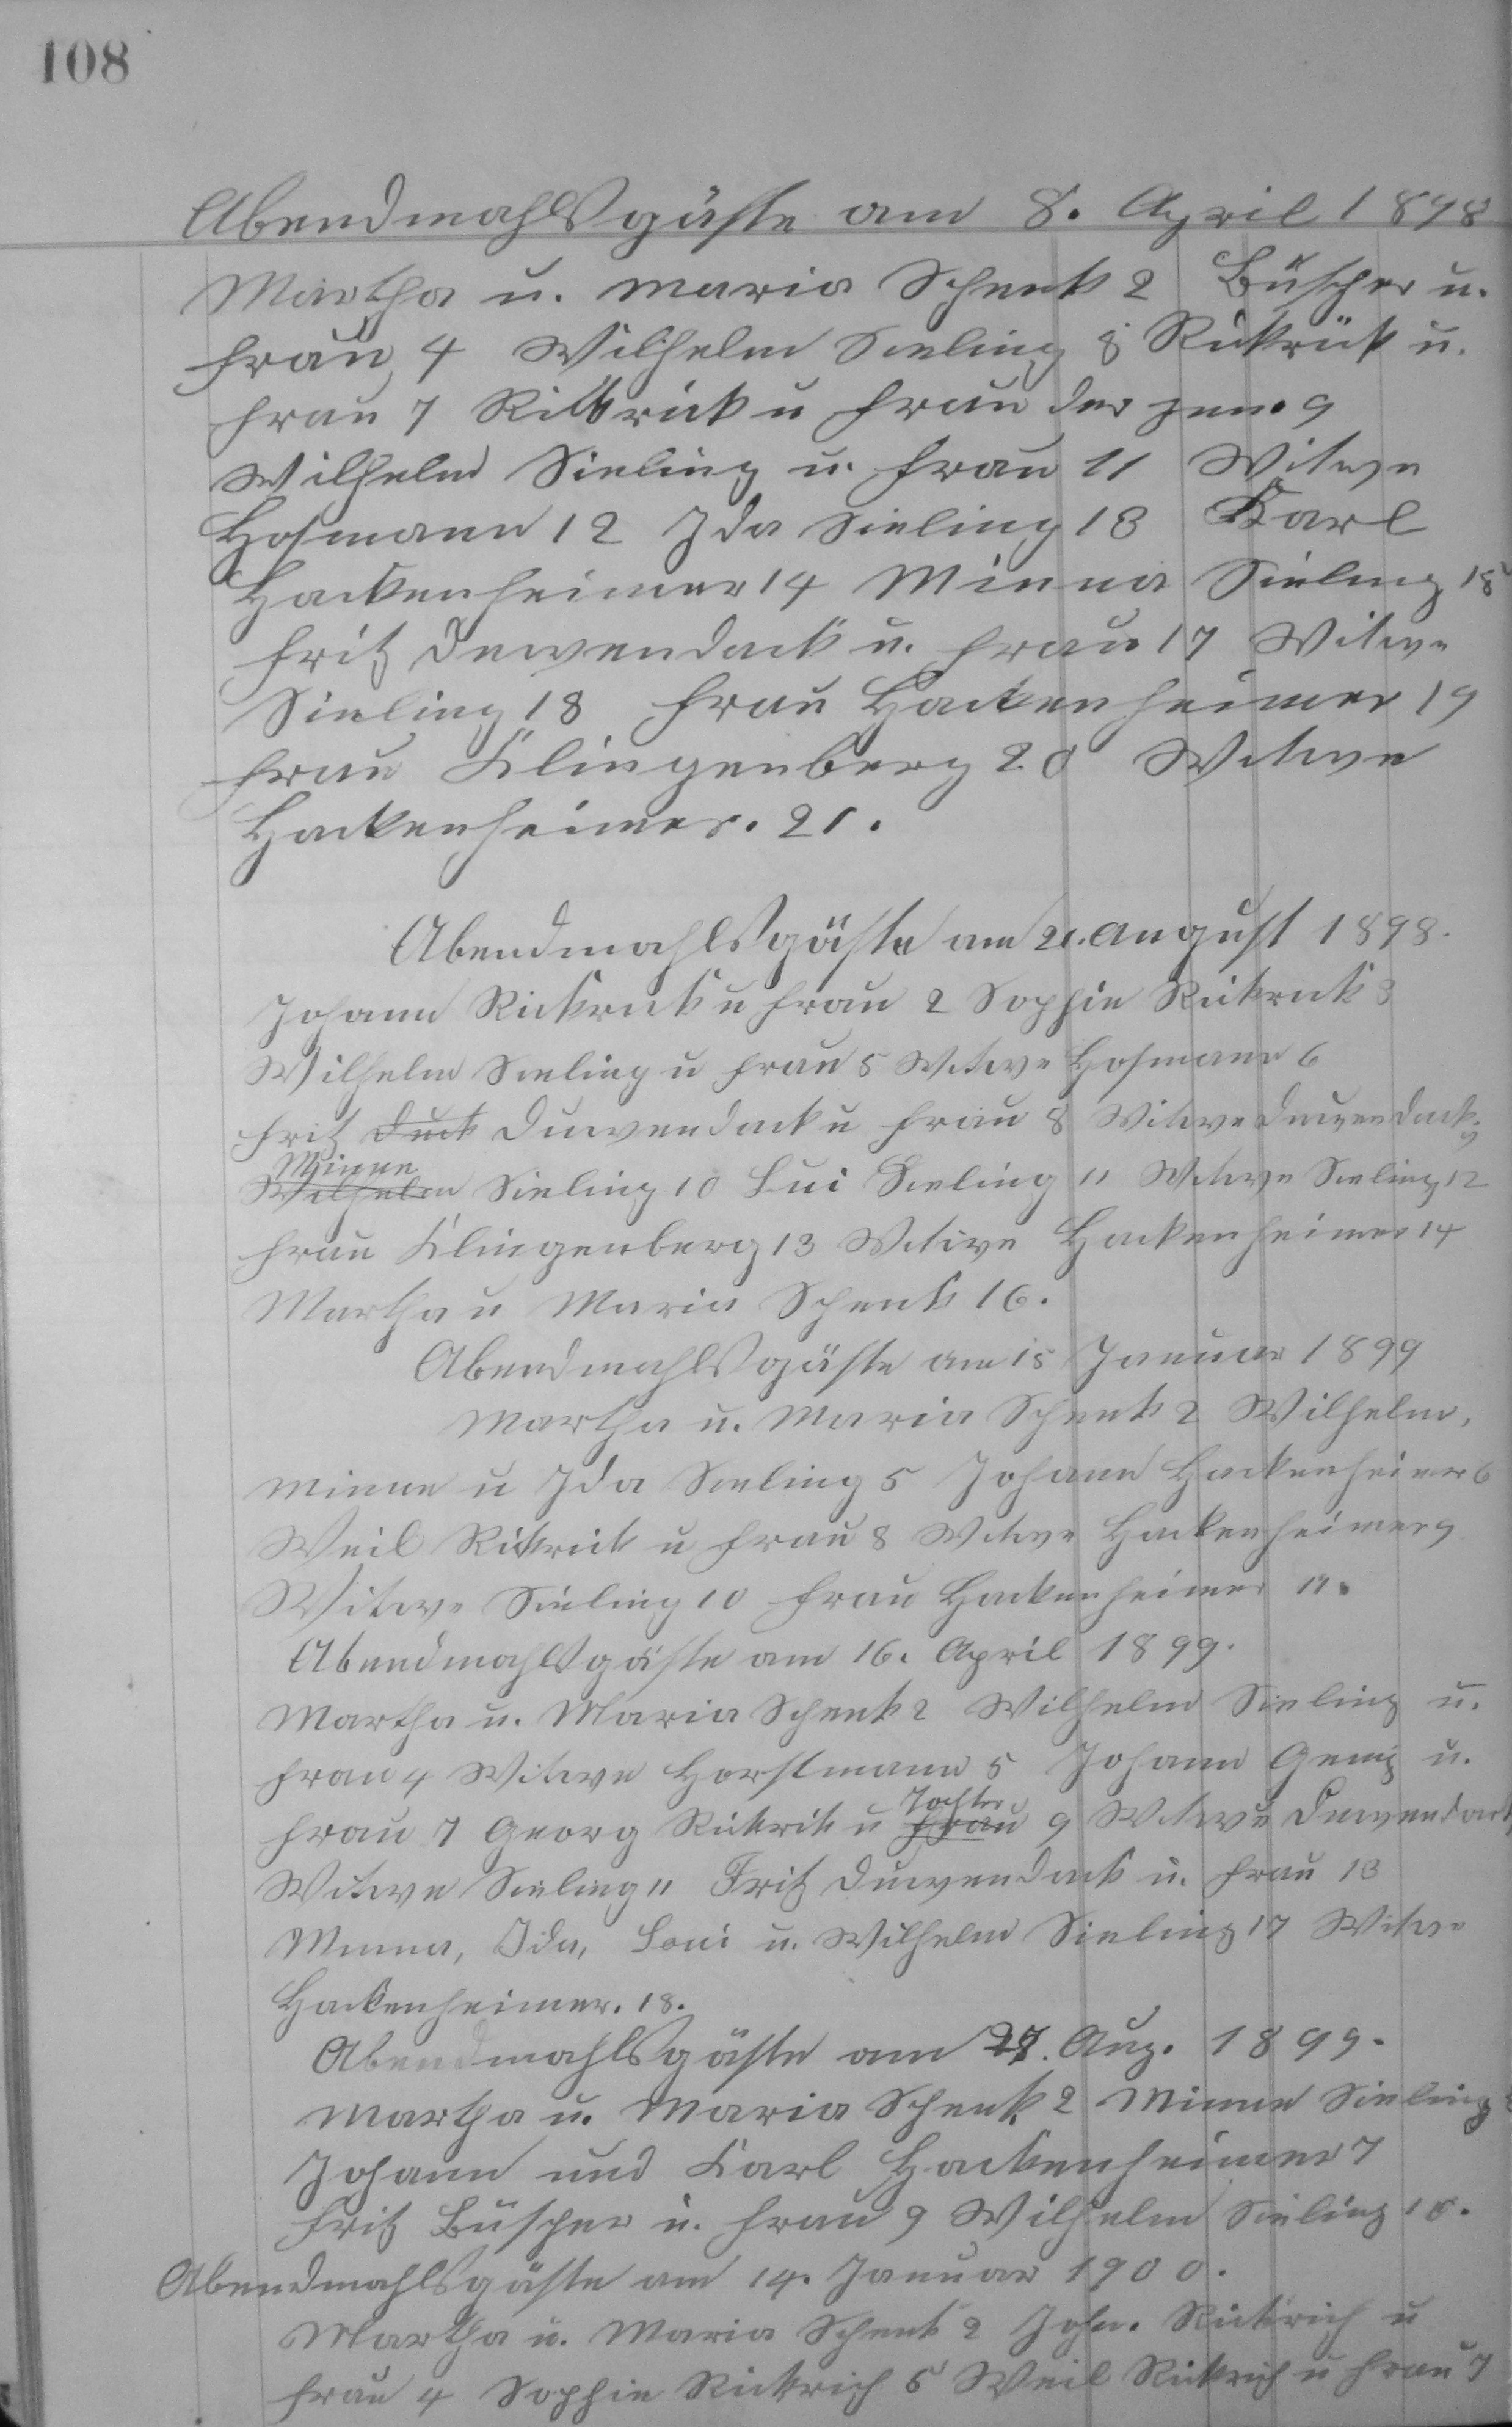 108
Abendmahlsgäste am 8. April 1898
Martha u. Maria Schenk 2 Büscher u.
Frau 4 Wilhelm Sieling 5 Rickrick u.
Frau 7 Rickrick u Frau der jun. 9
Wilhelm Sieling u. Frau 11 Witwe
Hosmann 12 Ida Sieling 13 Karl
Hackenheimer 14 Minna Sieling 15
Fritz Duwendack u. Frau 17 Witwe
Sieling 18 Frau Hackenheimer 19
Frau Klingenberg 20 Witwe
Hackenheimer. 21.
Abendmahlsgäste am 21. August 1898.
Johann Rickrick u Frau 2 Sophie Rickrick 3
Wilhelm Sieling u Frau 5 Witwe Hosmann 6
Fritz Duwendack u Frau 8 Witwe Duwendack 9
Minna Sieling 10 Lui Sieling 11 Witwe Sieling 12
Frau Klingenberg 13 Witwe Hackenheimer 14
Martha u Maria Schenk 16.
Abendmahlsgäste am 15 Januar 1899
Martha u. Maria Schenk 2 Wilhelm,
Minna u Ida Sieling 5 Johann Hackenheimer 6
Weil Rickrick u Frau 8 Witwe Hackenheimer 9
Witwe Sieling 10 Frau Hackenheimer 11.
Abendmahlsgäste am 16. April 1899.
Martha u. Maria Schenk 2 Wilhelm Sieling u.
Frau 4 Witwe Horstmann 5 Johann u.
Frau 7 Georg Rickrick u Tochter 9 Witwe Duwendack
Witwe Sieling 11 Fritz Duwendack u. Frau 13
Minna, Ida, Loui u. Wilhelm Sieling 17 Witwe
Hackenheimer. 18.
Abendmahlsgäste am 27. Aug. 1899.
Martha u. Maria Schenk 2 Minna Sieling
Johann und Karl Hackenheimer 7
Fritz Büscher u. Frau 9 Wilhelm Sieling 10.
Abendmahlsgäste am 14. Januar 1900.
Martha u. Maria Schenk 2 Joh. Rickrich u
Frau 4 Sophie Rickrich 5 Weil Rickrich u Frau 7